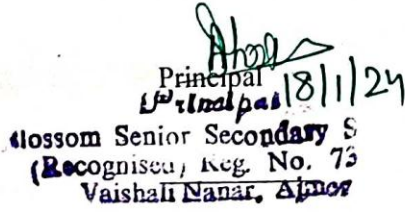 Principal 18/1/24
Principal
lossom Senior Secondary S
(Recognised) Reg. No. 73
Vaishali Nanar, Ajmer